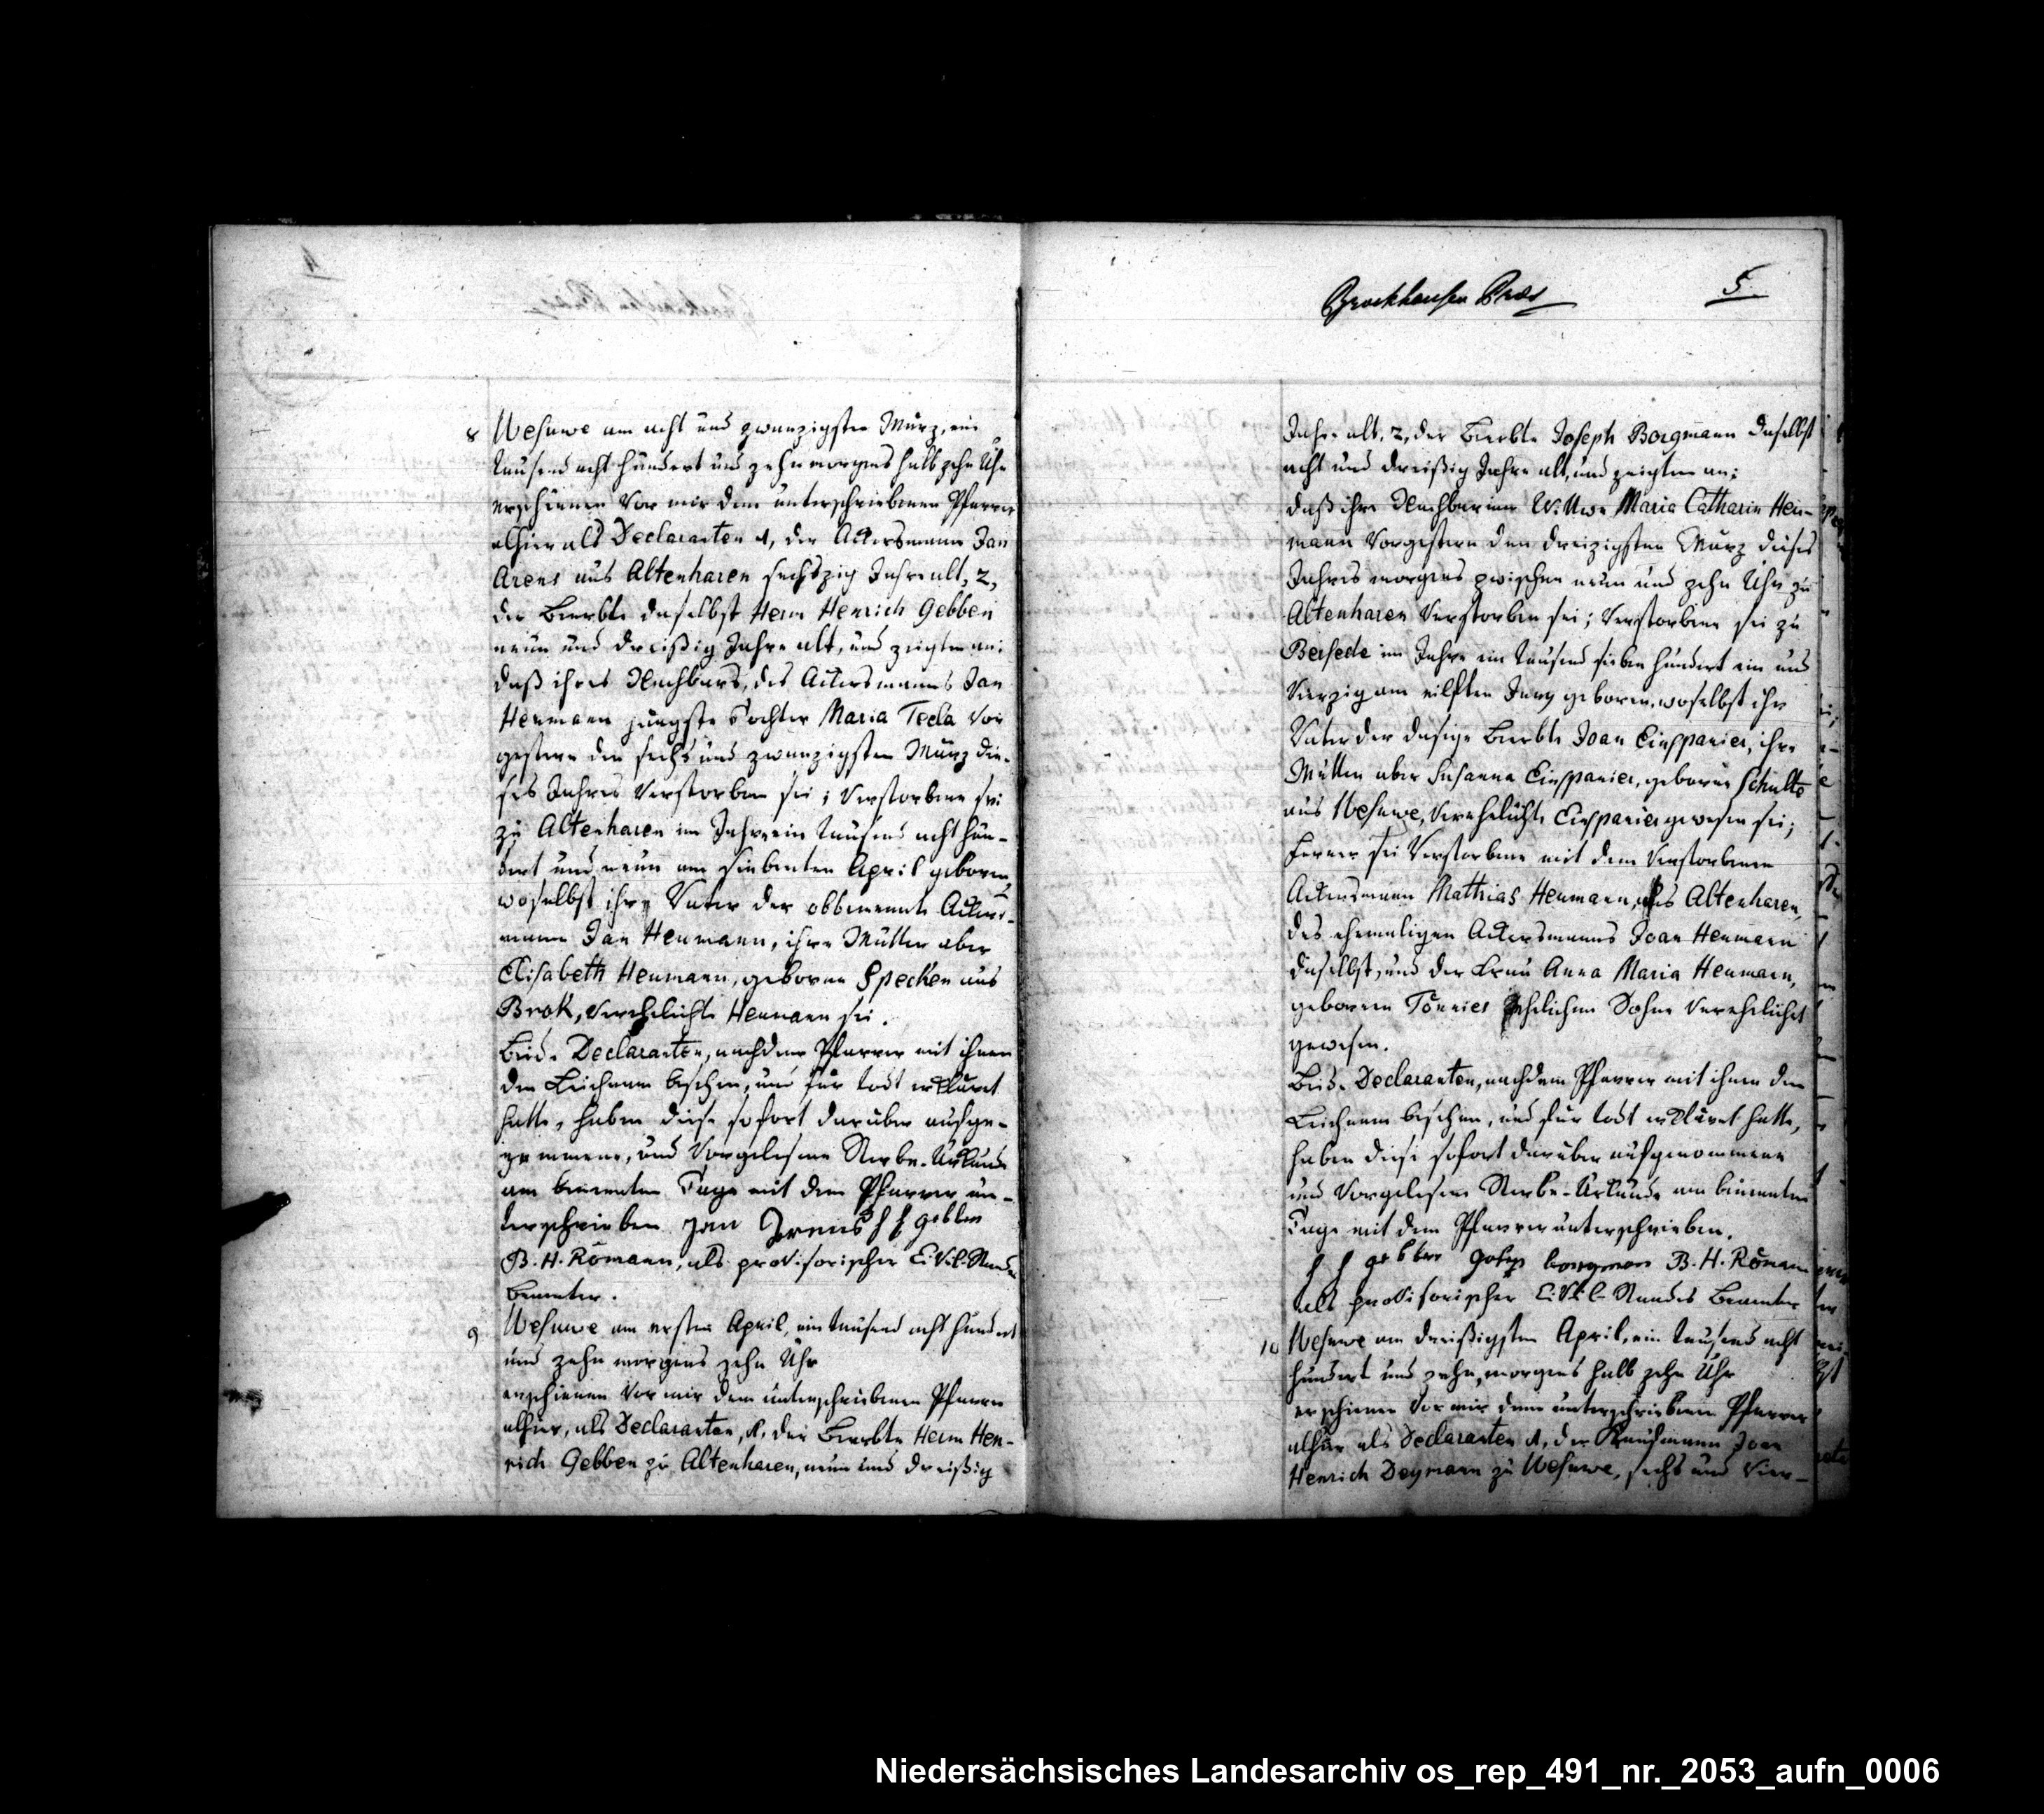 8 Wesuwe am acht und zwanzigsten März, ein
tausend acht hundert und zehn morgens halb zehn Uhr
erschienen vor mir dem unterschriebenen Pfarrer
alhier als Declaranten 1, der Ackersmann Jan
Arens aus Altenharen sechszig Jahre alt, 2,
der Beerbte daselbst Herm Henrich Gebben
neun und dreißig Jahre alt, und zeigten an:
daß ihres Nachbars, des Ackersmanns Jan
Heumann jüngste Tochter Maria Tecla vor
gestern den sechs und zwanzigsten März die-
ses Jahres verstorben sei; Verstorbene sei
zu Altenharen im Jahre ein tausend acht hun-
dert und neun am siebenten April geboren,
woselbst ihr Vater der obbenennte Ackers-
mann Jan Heumann, ihre Mutter aber
Elisabeth Heumann, geborne Specken aus
Brok, verehelichte Heumann sei.
Beide Declaranten, nachdem Pfarrer mit ihnen
den Leichnam besehen, und für todt erkläret
hatte, haben diese sofort darüber aufge-
nommene, und vorgelesene Sterbe-Urkunde
am benennten Tage mit dem Pfarrer un-
terschrieben Jan Arens H H Gebben
B. H. Römann, als provisorischer Civil-Standes
Beamter.
9 Wesuwe am ersten April, ein tausend acht hundert
und zehn morgens zehn Uhr
erschienen vor mir dem unterschriebenen Pfarrer
alhier, als Declaranten, 1, der Beerbte Herm Hen-
rich Gebben zu Altenharen, neun und dreißig
Brockhausen Präs
5
Jahre alt, 2, der Beerbte Joseph Borgmann daselbst
acht und dreißig Jahre alt, und zeigten an:
daß ihre Nachbarinn Wittwe Maria Catharin Heu-
mann vorgestern den dreizigsten März dieses
Jahres morgens zwischen neun und zehn Uhr zu
Altenharen verstorben sei; Verstorbene sei zu
Versede im Jahre ein tausend sieben hundert ein und
vierzig am eilften Juny geboren, woselbst ihr
Vater der dasige Beerbte Joan Einspanier, ihre
Mutter aber Susanna Einspanier, geborne Schulte
aus Wesuwe, verehelichte Einspanier gewesen sei;
ferner sei Verstorbene mit dem verstorbenen
Ackersmann Mathias Heumann, aus Altenharen,
des ehemaligen Ackersmanns Joan Heumann
daselbst, und der Frau Anna Maria Heumann,
gebornen Tönnies ehelichen Sohne verehelichet
gewesen.
Beide Declaranten, nachdem Pfarrer mit ihnen den
Leichnam besehen, und für todt erkläret hatte,
haben diese sofort darüber aufgenommene
und vorgelesene Sterbe-Urkunde am benennten
Tage mit dem Pfarrer unterschrieben.
H H Gebben Josep borgman B. H. Römann
als provisorischer Civil-Standes Beamter
10 Wesuwe am dreißigsten April, ein tausend acht
hundert und zehn, morgens halb zehn Uhr
erschienen vor mir dem unterschriebenen Pfarrer
alhier als Declaranten 1, der Kaufmann Joan
Henrich Deymann zu Wesuwe, sechs und vier-
Niedersächsisches Landesarchiv os_rep_491_nr._2053_aufn_0006